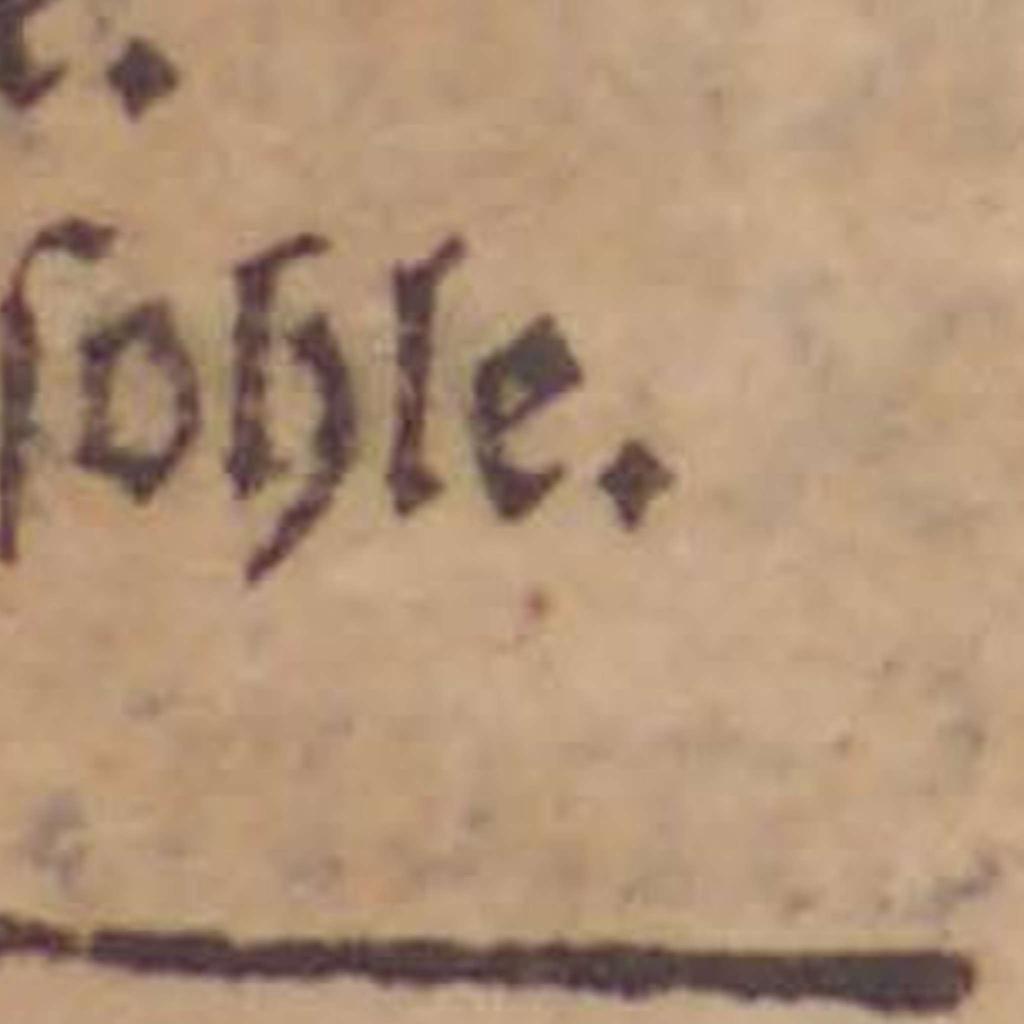 ſohle.